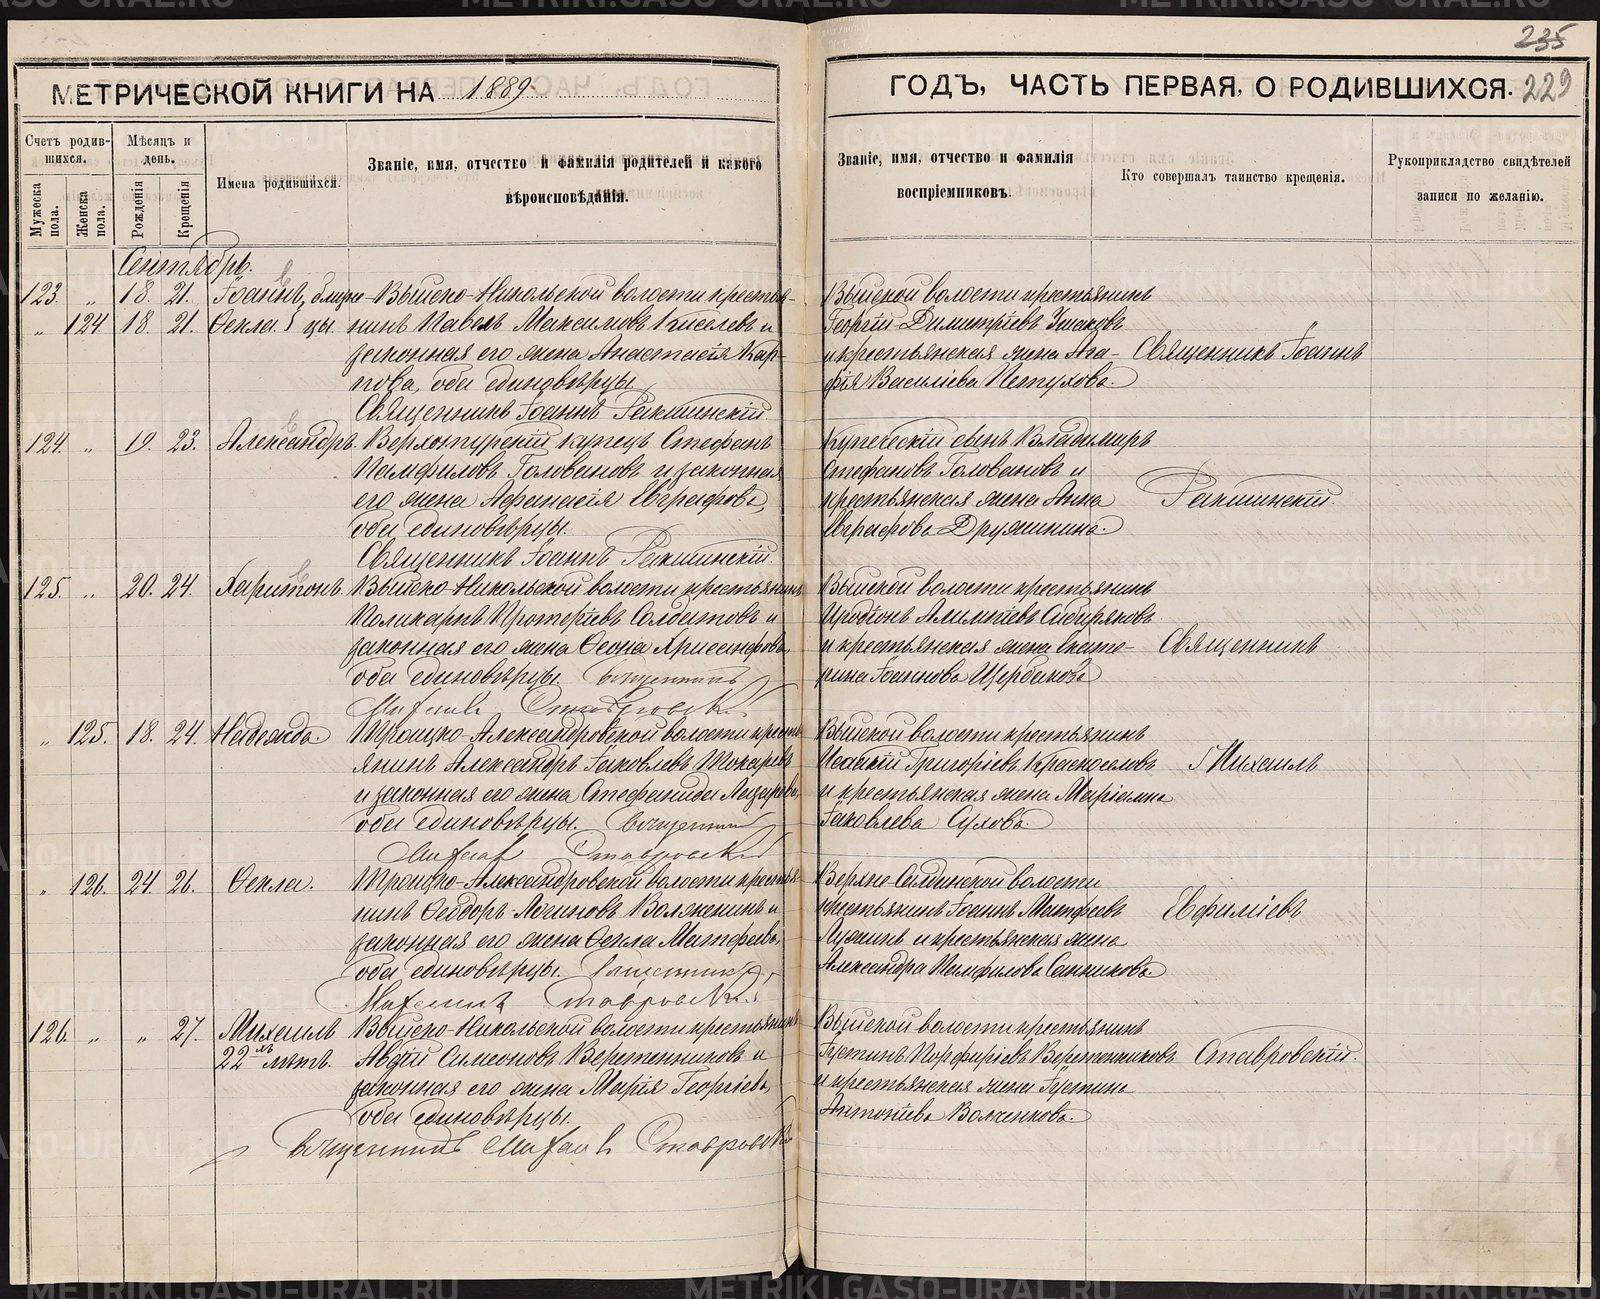 235
МЕТРИЧЕСКОЙ КНИГИ НА 1889
ГОДЪ, ЧАСТЬ ПЕРВАЯ, О РОДИВШИХСЯ. 229
Счетъ родившихся.
Мужеска пола.
Женска пола.
Мѣсяцъ и день.
Рожденія
Крещенія
Имена родившихся.
Званіе, имя, отчество и фамилія родителей и какого
вѣроисповѣданія.
Званіе, имя, отчество и фамилія
воспріемниковъ.
Кто совершалъ таинство крещенія.
Рукоприкладство свидѣтелей
записи по желанію.
Сентябрь.
123. „ 18. 21. Іоаннъ, близне- Выйско-Никольской волости крестья-
„ 124 18. 21. Ѳекла цы нинъ Павелъ Максимовъ Киселевъ и
законная его жена Анастасія Кар-
пова, оба единовѣрцы
Священникъ Іоаннъ Ракшинскій
Выйской волости крестьянинъ
Георгій Димитріевъ Ушаковъ
и крестьянская жена Ага-
фія Василіева Петухова.
Священникъ Іоаннъ
124. „ 19. 23. Александръ. Верхотурскій купецъ Стефанъ
Памфиловъ Головановъ и законная
его жена Афанасія Евграфова,
оба единовѣрцы.
Священникъ Іоаннъ Ракшинскій.
Купеческій сынъ Владимиръ
Стефановъ Головановъ и
крестьянская жена Анна
Евграфова Дружинина.
Ракшинскій.
125. „ 20. 24. Харитонъ. Выйско-Никольской волости крестьянинъ
Поликарпъ Протеріевъ Солдатовъ и
законная его жена Ѳеона Хрисанфова,
оба единовѣрцы. Священникъ
Михаилъ Ставровскій
Выйской волости крестьянинъ
Иродіонъ Алимпіевъ Сибиряковъ
и крестьянская жена Екате-
рина Іоаннова Щербакова
Священникъ
„ 125. 18. 24. Надежда. Троицко-Александровской волости кресть-
янинъ Александръ Іаковлевъ Токаревъ
и законная его жена Стефанида Лазарева,
оба единовѣрцы. Священникъ
Михаилъ Ставровскій
Выйской волости крестьянинъ
Исаакій Григоріевъ Красноселовъ
и крестьянская жена Маріамна
Іаковлева Сухова.
Михаилъ
„ 126. 24. 26. Ѳекла. Троицко-Александровской волости крестья-
нинъ Ѳеодоръ Логиновъ Волженинъ и
законная его жена Ѳекла Матфеева,
оба единовѣрцы. Священникъ
Михаилъ Ставровскій
Верхне-Салдинской волости
крестьянинъ Іоаннъ Матфеевъ
Лужинъ и крестьянская жена
Александра Памфилова Санникова.
Евфиміевъ
126. „ „ 27. Михаилъ Выйско-Никольской волости крестьянинъ
22 лѣтъ. Авдій Симеоновъ Веретенниковъ и
законная его жена Марія Георгіева,
оба единовѣрцы.
Священникъ Михаилъ Ставровскій
Выйской волости крестьянинъ
Іустинъ Порфиріевъ Веретенниковъ
и крестьянская жена Іустина
Антоніева Волженкова.
Ставровскій.